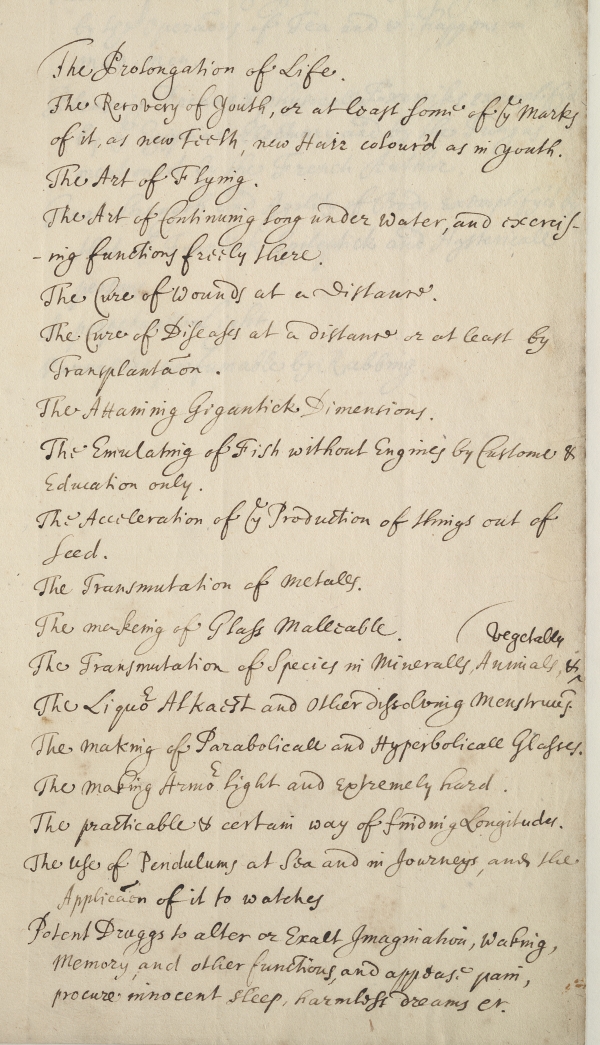 The Prolongation of Life.
The Recovery of Youth, or at least some of yͤ Marks
of it, as new Teeth, new Hair colour'd as in youth.
The Art of Flying.
The Art of Continuing long under water, and exercis-
-ing functions freely there.
The Cure of Wounds at a Distance.
The Cure of Diseases at a distance or at least by
Transplantaōn.
The Attaining Gigantick Dimensions.
The Emulating of Fish without Engines by Custome &
Education only.
The Acceleration of yͤ Production of things out of
Seed.
The Transmutation of Metalls.
The makeing of Glass Malleable.
Vegetabls
The Transmutation of Species in Mineralls, Animals, &
The Liquoͬ Alkaest and other dissolving Menstruums.
The making of Parabolicall and Hyperbolicall Glasses.
The making Armoͬ light and extremely hard.
The practicable & certain way of finding Longitudes.
The use of Pendulums at Sea and in Journeys, and the
Applicaōn of it to watches
Potent Druggs to alter or Exalt Imagination, Waking,
Memory, and other functions, and appease pain,
procure innocent sleep, harmless dreams etc.